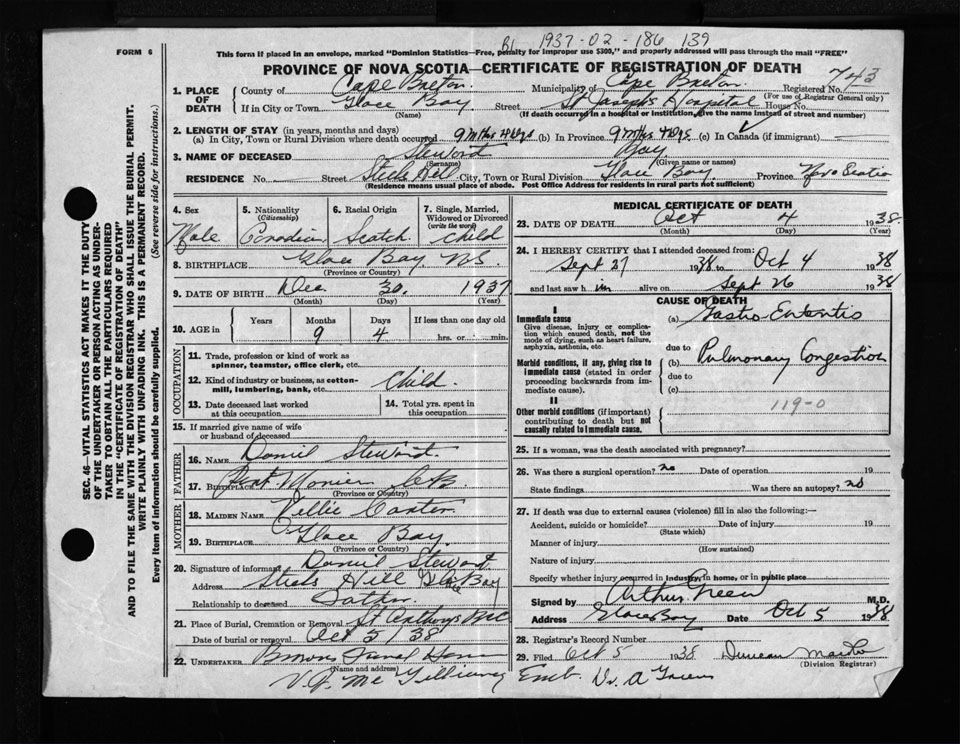 FORM 6
B1. 1937-02-186 139
This form if placed in an envelope, marked "Dominion Statistics—Free, penalty for improper use $300," and properly addressed will pass through the mail "FREE"
PROVINCE OF NOVA SCOTIA—CERTIFICATE OF REGISTRATION OF DEATH
743
1. PLACE OF DEATH
County of Cape Breton Municipality of Cape Breton Registered No.
(For use of Registrar General only)
If in City or Town Glace Bay Street St Joseph's Hospital House No.
(Name) (If death occurred in a hospital or institution, give the name instead of street and number)
2. LENGTH OF STAY (in years, months and days)
(a) In City, Town or Rural Division where death occurred 9 mths 4 dys (b) In Province 9 mths 4 dys (c) In Canada (if immigrant)
3. NAME OF DECEASED Steward Ray
(Surname) (Given name or names)
RESIDENCE No. Street Steels Hill City, Town or Rural Division Glace Bay Province Nova Scotia
(Residence means usual place of abode. Post Office Address for residents in rural parts not sufficient)
4. Sex Male
5. Nationality (Citizenship) Canadian
6. Racial Origin Scotch
7. Single, Married, Widowed or Divorced (write the word) Child
8. BIRTHPLACE Glace Bay N.S.
(Province or Country)
9. DATE OF BIRTH Dec 30 1937
(Month) (Day) (Year)
10. AGE in Years Months Days If less than one day old
9 4 hrs. or min.
OCCUPATION
11. Trade, profession or kind of work as spinner, teamster, office clerk, etc.
12. Kind of industry or business, as cotton-mill, lumbering, bank, etc. Child.
13. Date deceased last worked at this occupation
14. Total yrs. spent in this occupation
15. If married give name of wife or husband of deceased
FATHER
16. Name Daniel Steward
17. Birthplace Port Morien C.B.
(Province or Country)
MOTHER
18. Maiden Name Carter
19. Birthplace Glace Bay
(Province or Country)
20. Signature of informant Daniel Steward
Address Steels Hill Gl. Bay
Relationship to deceased Father
21. Place of Burial, Cremation or Removal St Anthonys
Date of burial or removal Oct 5/38
22. UNDERTAKER Funeral Home
(Name and address)
V.J. McGillivray Emb. Dr. A Green
MEDICAL CERTIFICATE OF DEATH
23. DATE OF DEATH Oct 4 1938
(Month) (Day) (Year)
24. I HEREBY CERTIFY that I attended deceased from:
Sept 27 1938 to Oct 4 1938
and last saw him alive on Sept 26 1938
CAUSE OF DEATH
I
Immediate cause
Give disease, injury or complication which caused death, not the mode of dying, such as heart failure, asphyxia, asthenia, etc.
(a) Gastro Enteritis
due to
Morbid conditions, if any, giving rise to immediate cause (stated in order proceeding backwards from immediate cause).
(b) Pulmonary Congestion
due to
(c)
119-0
II
Other morbid conditions (if important) contributing to death but not causally related to immediate cause.
25. If a woman, was the death associated with pregnancy?
26. Was there a surgical operation? no Date of operation 19
State findings Was there an autopsy? no
27. If death was due to external causes (violence) fill in also the following:—
Accident, suicide or homicide? Date of injury 19
(State which)
Manner of injury
(How sustained)
Nature of injury
Specify whether injury occurred in industry, in home, or in public place
Signed by Arthur Green M.D.
Address Glace Bay Date Oct 5 1938
28. Registrar's Record Number
29. Filed Oct 5 1938 Duncan
(Division Registrar)
SEC. 46—VITAL STATISTICS ACT MAKES IT THE DUTY
OF THE UNDERTAKER OR PERSON ACTING AS UNDER-
TAKER TO OBTAIN ALL THE PARTICULARS REQUIRED
IN THE "CERTIFICATE OF REGISTRATION OF DEATH"
AND TO FILE THE SAME WITH THE DIVISION REGISTRAR WHO SHALL ISSUE THE BURIAL PERMIT.
WRITE PLAINLY WITH UNFADING INK. THIS IS A PERMANENT RECORD.
Every item of information should be carefully supplied. (See reverse side for instructions.)